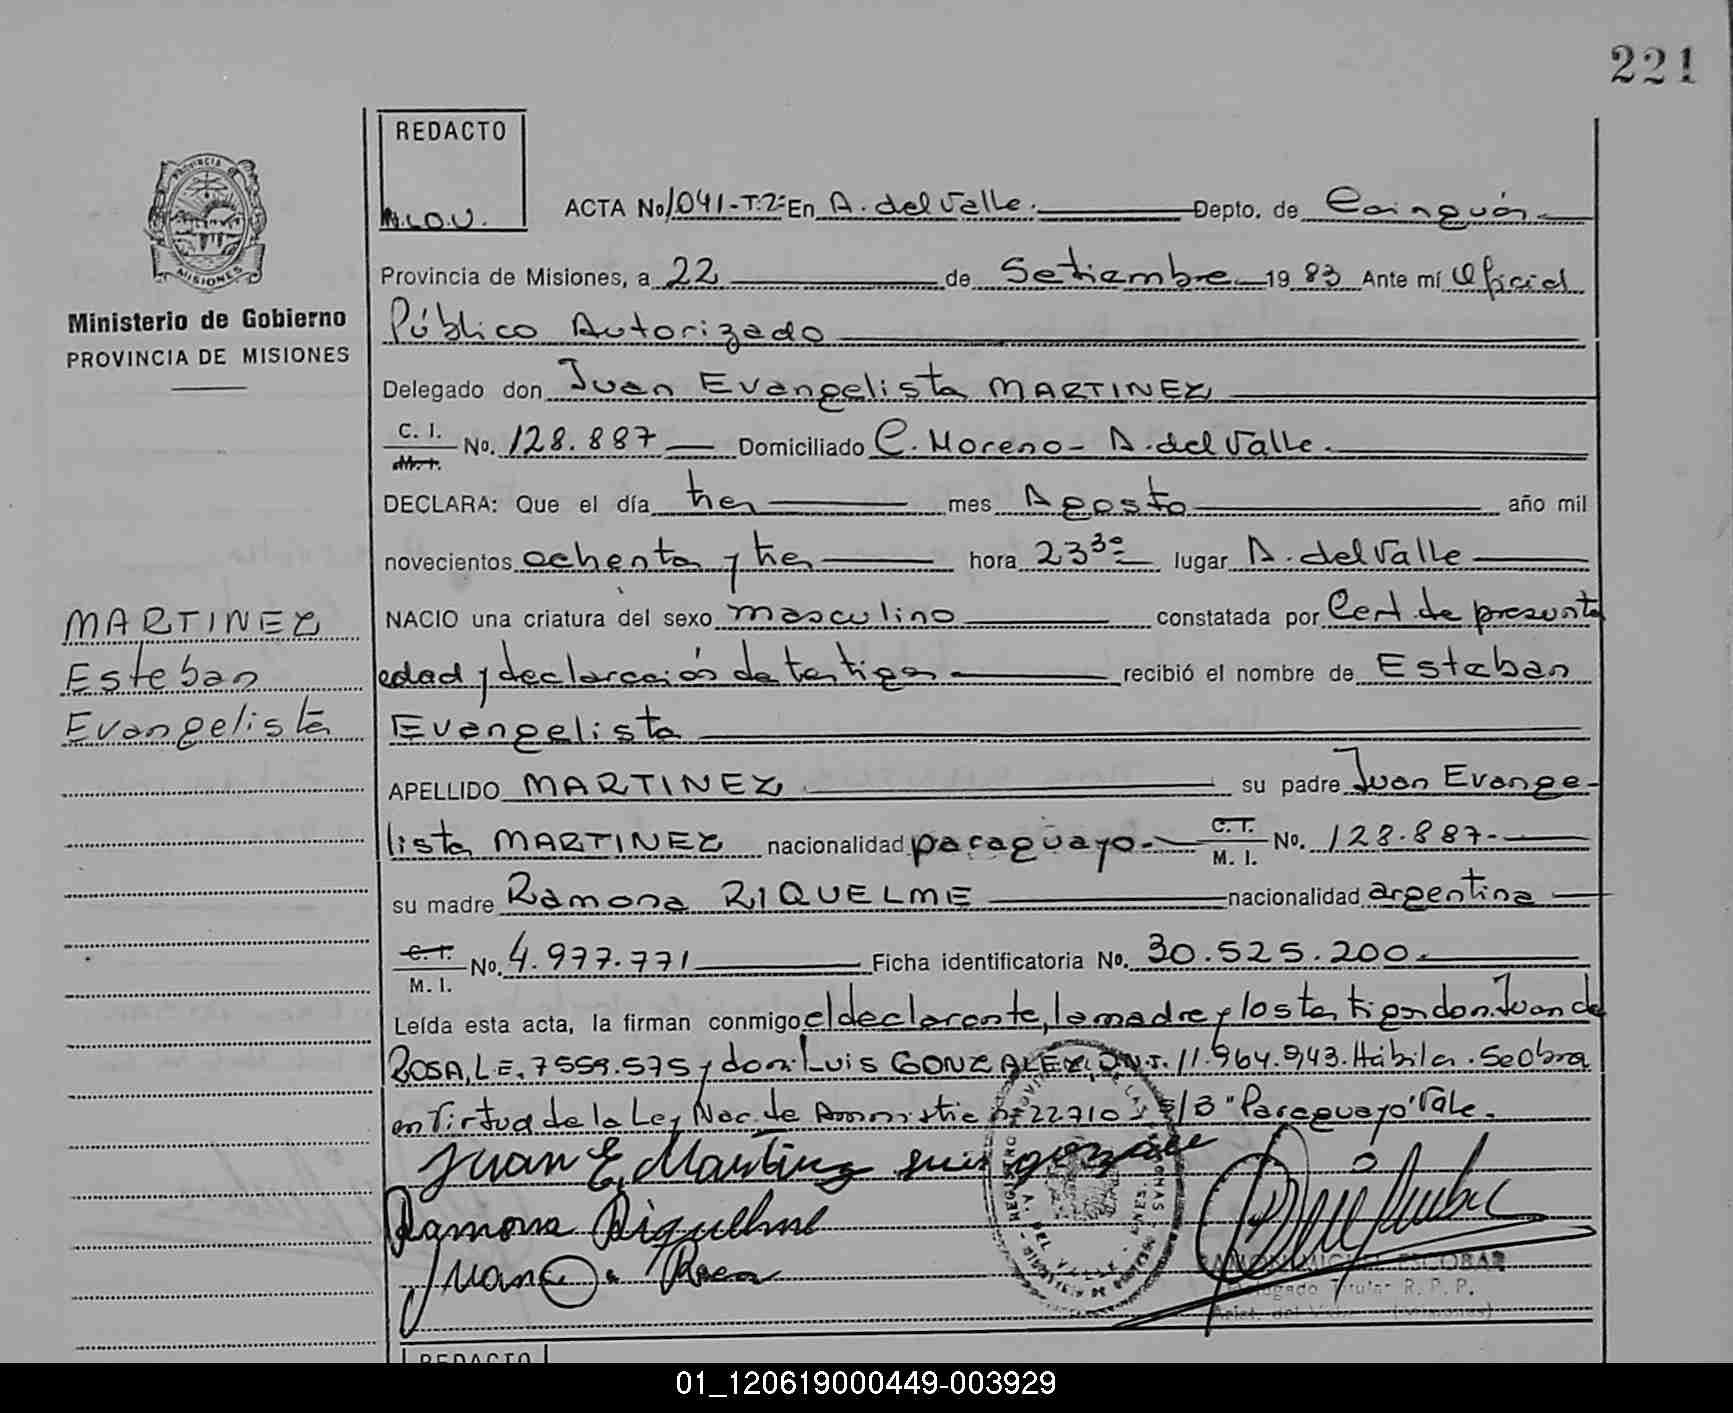 221
REDACTO
M.L.O.V.
PROVINCIA DE MISIONES
ACTA No 1041-T.2º En A. del Valle. Depto. de Cainguás
Provincia de Misiones, a 22 de Setiembre 1983 Ante mí Oficial
Público Autorizado
Ministerio de Gobierno
PROVINCIA DE MISIONES
Delegado don Juan Evangelista MARTINEZ
C. I. M. I. No. 128.887 Domiciliado C. Moreno - A. del Valle.
DECLARA: Que el día tres mes Agosto año mil
novecientos ochenta y tres hora 23³⁰ lugar A. del Valle
MARTINEZ
Esteban
Evangelista
NACIO una criatura del sexo masculino constatada por Cert. de presunta
edad y declaración de testigos recibió el nombre de Esteban
Evangelista
APELLIDO MARTINEZ su padre Juan Evange-
lista MARTINEZ nacionalidad paraguayo. C. I. M. I. No. 128.887-
su madre Ramona RIQUELME nacionalidad argentina
C. I. M. I. No. 4.977.771 Ficha identificatoria No. 30.525.200.
Leída esta acta, la firman conmigo el declarante, la madre y los testigos don: Juan de
ROSA, L.E. 7559.575 y don: Luis GONZALEZ, D.N.I. 11.964.943. Hábiles. Se Obra
en Virtud de la Ley Nac. de Amnistía nº 22710 - s/B "Paraguayo" Vale.
Juan E. Martinez Luis
Ramona Riquelme
Juan
RAMON MIGUEL ESCOBAR
Delegado Titular R. P. P.
Arist. del Valle (Misiones)
REDACTO
01_120619000449-003929